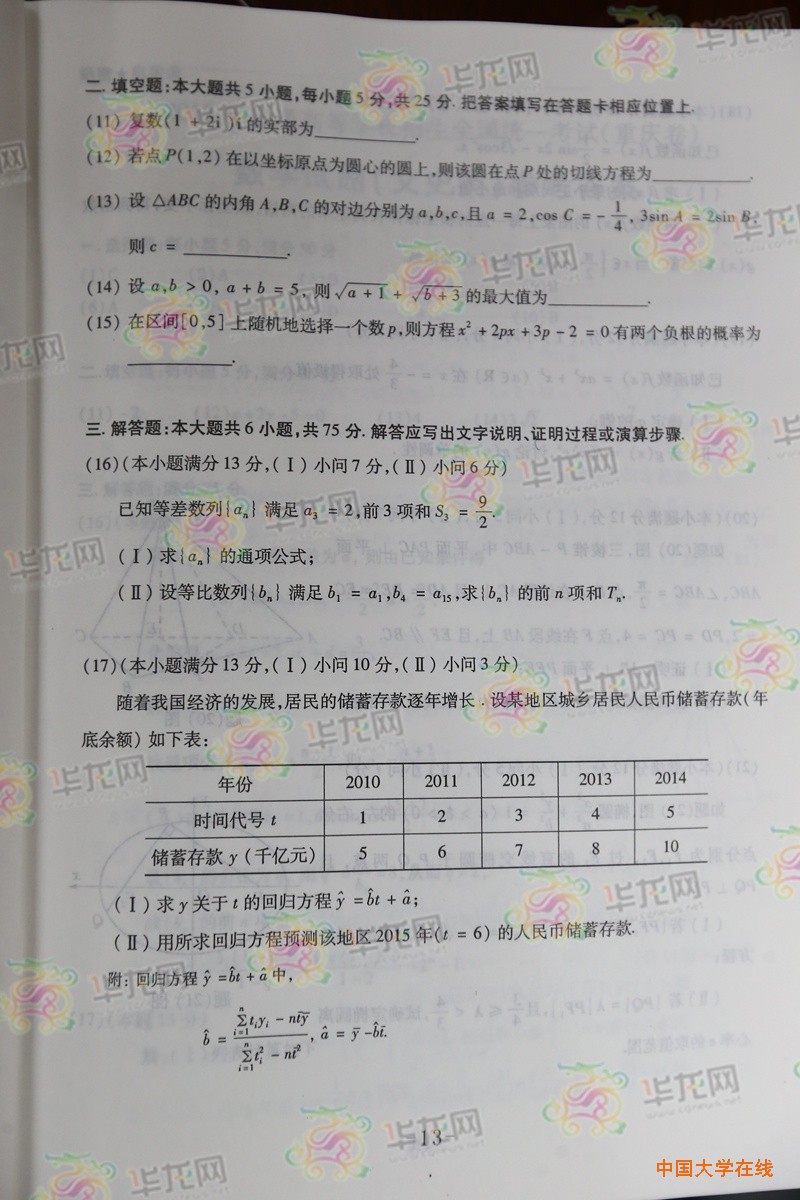 二. 填空题:本大题共5小题,每小题5分,共25分. 把答案填写在答题卡相应位置上.
(11) 复数(1 + 2i )i 的实部为________.
(12) 若点P(1,2) 在以坐标原点为圆心的圆上,则该圆在点P处的切线方程为________.
(13) 设 △ABC 的内角 A,B,C 的对边分别为 a,b,c,且 a = 2,cos C = - 1/4, 3sin A = 2sin B,
则 c = ________.
(14) 设 a,b > 0, a + b = 5, 则 √(a + 1) + √(b + 3) 的最大值为________.
(15) 在区间[0,5] 上随机地选择一个数p,则方程x² + 2px + 3p - 2 = 0 有两个负根的概率为
________.
三. 解答题:本大题共6小题,共75分. 解答应写出文字说明、证明过程或演算步骤.
(16)(本小题满分13分,(Ⅰ)小问7分,(Ⅱ)小问6分)
已知等差数列{aₙ} 满足 a₃ = 2,前3项和 S₃ = 9/2.
(Ⅰ) 求{aₙ} 的通项公式;
(Ⅱ) 设等比数列{bₙ} 满足 b₁ = a₁,b₄ = a₁₅,求{bₙ} 的前 n 项和 Tₙ.
(17)(本小题满分13分,(Ⅰ)小问10分,(Ⅱ)小问3分)
随着我国经济的发展,居民的储蓄存款逐年增长 . 设某地区城乡居民人民币储蓄存款(年
底余额) 如下表:
年份 2010 2011 2012 2013 2014
时间代号 t 1 2 3 4 5
储蓄存款 y (千亿元) 5 6 7 8 10
(Ⅰ) 求 y 关于 t 的回归方程 ŷ = b̂t + â;
(Ⅱ) 用所求回归方程预测该地区2015年(t = 6) 的人民币储蓄存款.
附: 回归方程 ŷ = b̂t + â 中,
b̂ = (∑ᵢ₌₁ⁿ tᵢyᵢ - nt̄ȳ) / (∑ᵢ₌₁ⁿ tᵢ² - nt̄²), â = ȳ - b̂t̄.
13
华龙网
中国大学在线